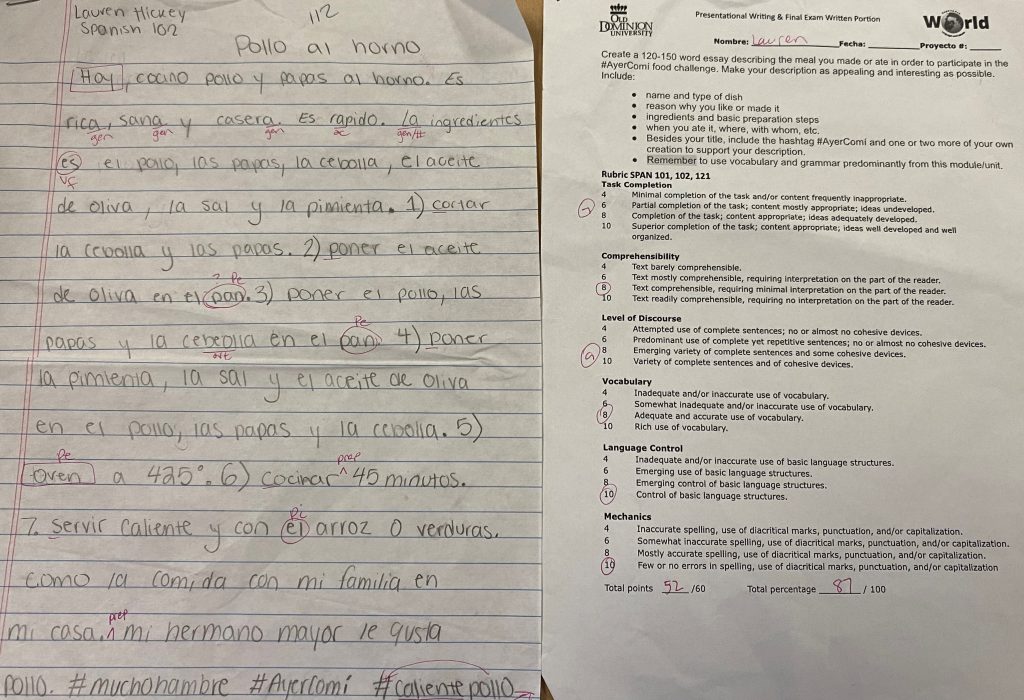 Lauren Hickey
Spanish 102
112
Pollo al horno
Hoy, cocino pollo y papas al horno. Es
rica, sana y casera. Es rapido. La ingredientes
gen gen gen ac gen/#
es el pollo, las papas, la cebolla, el aceite
vf
de oliva, la sal y la pimienta. 1) cortar
la cebolla y las papas. 2) poner el aceite
? Pe
de oliva en el pan. 3) poner el pollo, las
Pe
papas y la cebeolla en el pan 4) poner
ort
la pimienta, la sal y el aceite de oliva
en el pollo, las papas y la cebolla. 5)
Pe prep
Oven a 425°. 6) cocinar ^ 45 minutos.
Pe
7. servir caliente y con el arroz o verduras.
como la comida con mi familia en
prep
mi casa. ^ mi hermano mayor le gusta
pollo. #muchohambre #AyerComí #calientepollo
OLD DOMINION UNIVERSITY
Presentational Writing & Final Exam Written Portion
World
Nombre: Lauren Fecha: ________ Proyecto #: _____
Create a 120-150 word essay describing the meal you made or ate in order to participate in the
#AyerComí food challenge. Make your description as appealing and interesting as possible.
Include:
• name and type of dish
• reason why you like or made it
• ingredients and basic preparation steps
• when you ate it, where, with whom, etc.
• Besides your title, include the hashtag #AyerComí and one or two more of your own
creation to support your description.
• Remember to use vocabulary and grammar predominantly from this module/unit.
Rubric SPAN 101, 102, 121
Task Completion
4 Minimal completion of the task and/or content frequently inappropriate.
6 Partial completion of the task; content mostly appropriate; ideas undeveloped.
7
8 Completion of the task; content appropriate; ideas adequately developed.
10 Superior completion of the task; content appropriate; ideas well developed and well
organized.
Comprehensibility
4 Text barely comprehensible.
6 Text mostly comprehensible, requiring interpretation on the part of the reader.
8 Text comprehensible, requiring minimal interpretation on the part of the reader.
10 Text readily comprehensible, requiring no interpretation on the part of the reader.
Level of Discourse
4 Attempted use of complete sentences; no or almost no cohesive devices.
6 Predominant use of complete yet repetitive sentences; no or almost no cohesive devices.
8 Emerging variety of complete sentences and some cohesive devices.
9
10 Variety of complete sentences and of cohesive devices.
Vocabulary
4 Inadequate and/or inaccurate use of vocabulary.
6 Somewhat inadequate and/or inaccurate use of vocabulary.
8 Adequate and accurate use of vocabulary.
10 Rich use of vocabulary.
Language Control
4 Inadequate and/or inaccurate use of basic language structures.
6 Emerging use of basic language structures.
8 Emerging control of basic language structures.
10 Control of basic language structures.
Mechanics
4 Inaccurate spelling, use of diacritical marks, punctuation, and/or capitalization.
6 Somewhat inaccurate spelling, use of diacritical marks, punctuation, and/or capitalization.
8 Mostly accurate spelling, use of diacritical marks, punctuation, and/or capitalization.
10 Few or no errors in spelling, use of diacritical marks, punctuation, and/or capitalization
Total points 52 /60 Total percentage 87 / 100